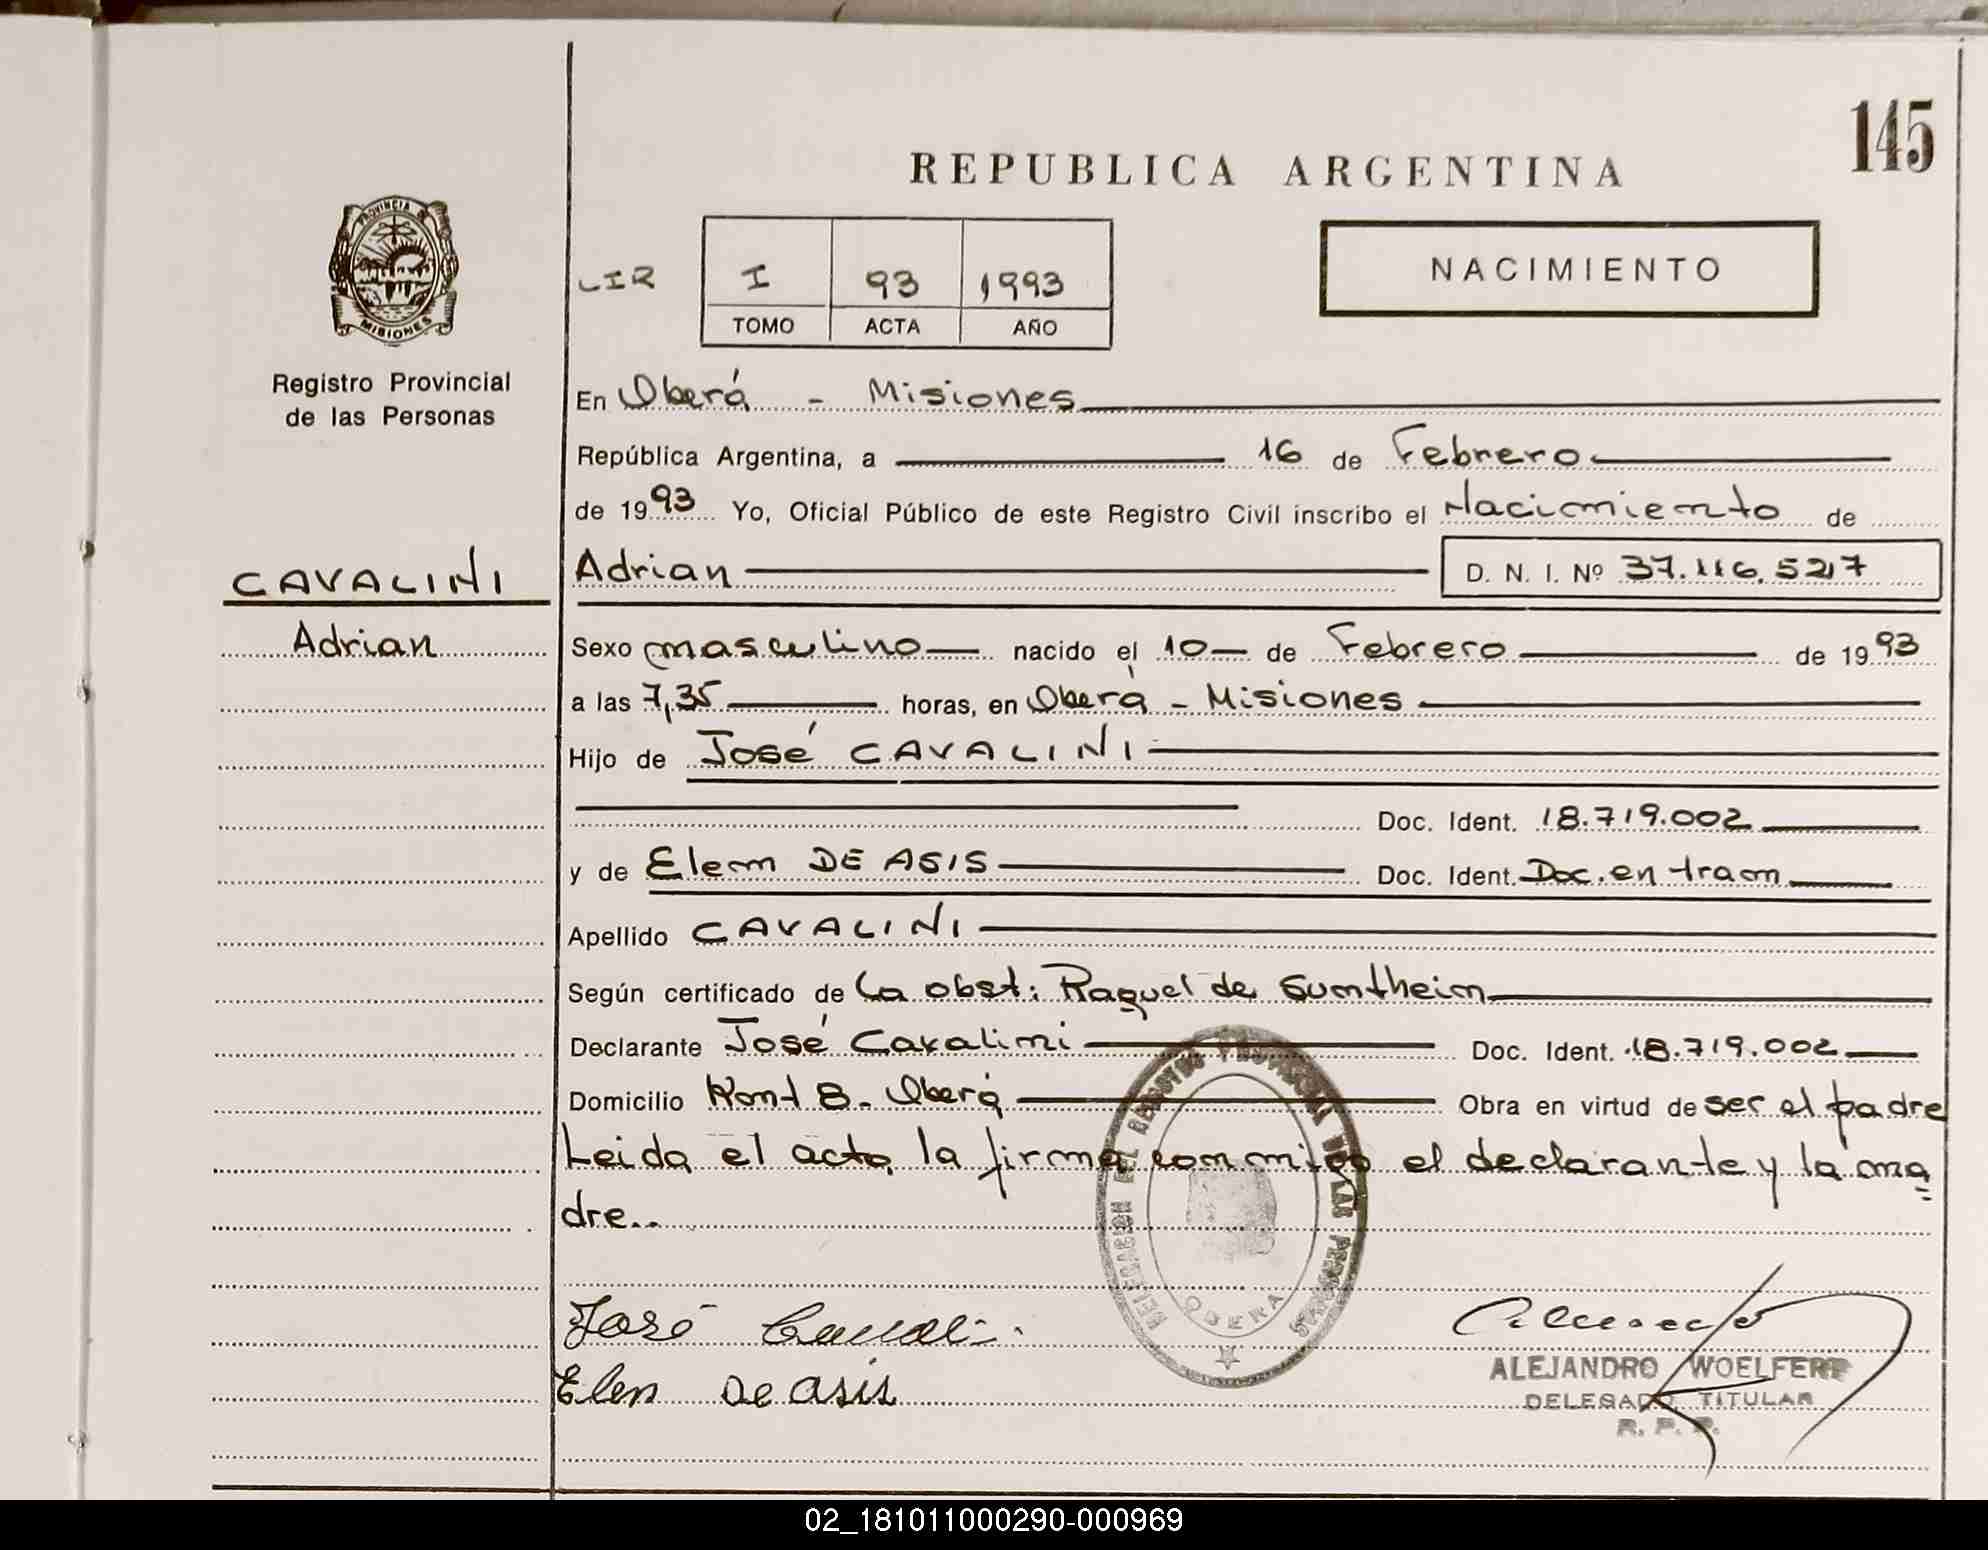 145
REPUBLICA ARGENTINA
PROVINCIA DE
MISIONES
Registro Provincial
de las Personas
LIR I 93 1993
TOMO ACTA AÑO
NACIMIENTO
En Oberá - Misiones
República Argentina, a 16 de Febrero
de 1993 Yo, Oficial Público de este Registro Civil inscribo el Nacimiento de
CAVALINI Adrian D. N. I. Nº 37.116.527
Adrian Sexo masculino nacido el 10 de Febrero de 1993
a las 7,35 horas, en Oberá - Misiones
Hijo de José CAVALINI
Doc. Ident. 18.719.002
y de Elem DE ASIS Doc. Ident. Doc. en tram
Apellido CAVALINI
Según certificado de la obst: Raquel de Sumtheim
Declarante José Cavalini Doc. Ident. 18.719.002
Domicilio Kont 8 - Oberá Obra en virtud de ser el padre
Leida el acta la firma conmigo el declarante y la ma
dre..
DELEGACION DEL REGISTRO PROVINCIAL DE LAS PERSONAS
OBERA
José Cavalini
Elen De asis
ALEJANDRO WOELFERT
DELEGADO TITULAR
R. P. P.
02_181011000290-000969